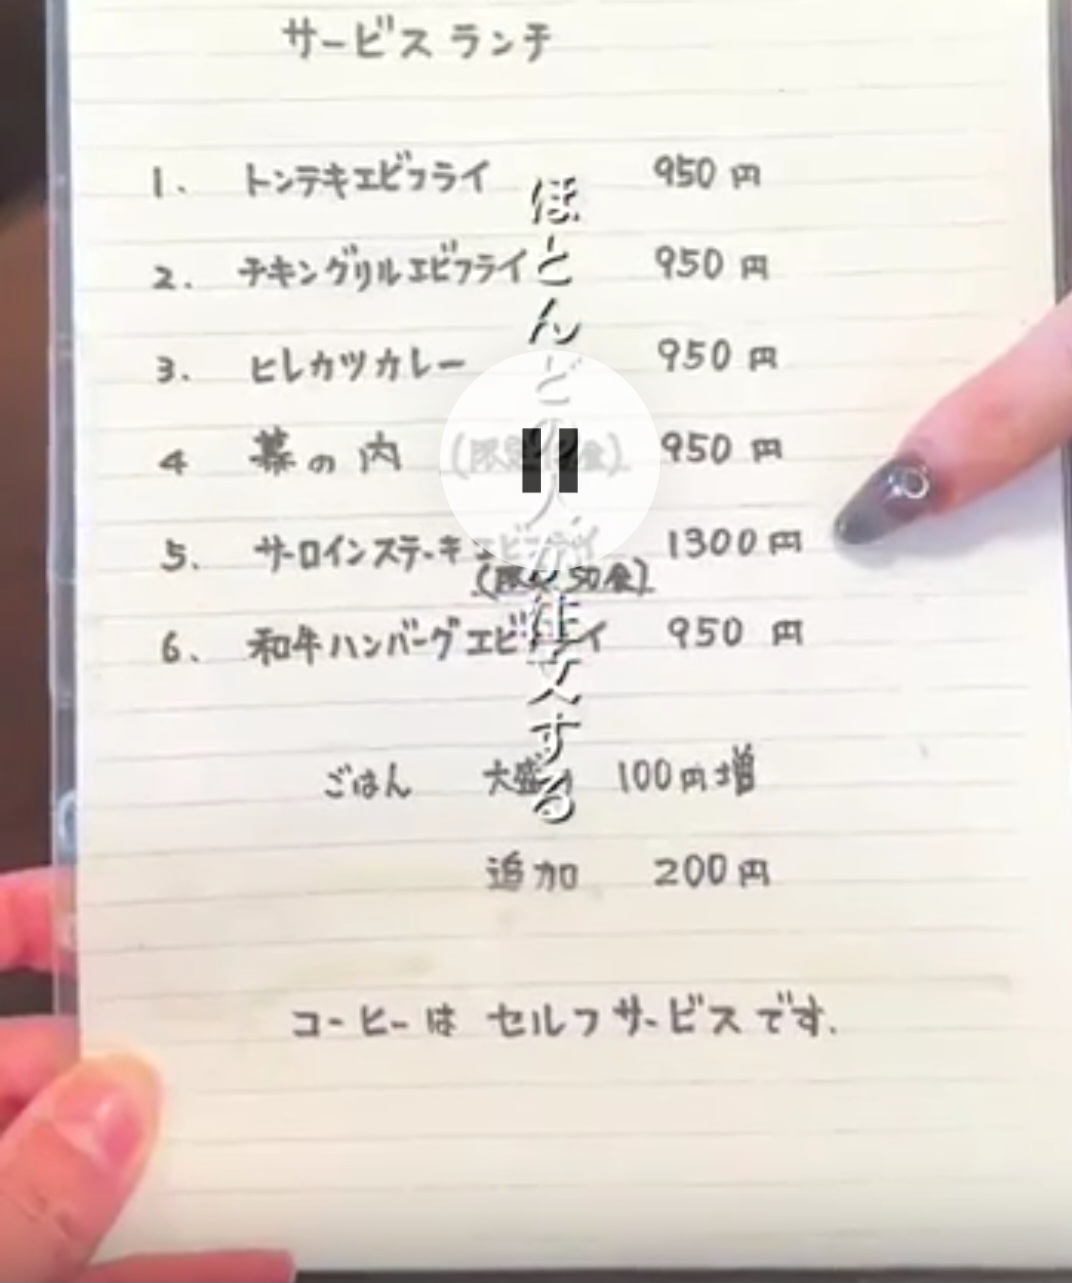 サービスランチ
1. トンテキエビフライ 950円
2. チキングリルエビフライ 950円
3. ヒレカツカレー 950円
4 幕の内 (限定 食) 950円
5. サーロインステーキエビフライ 1300円
(限定 50食)
6. 和牛ハンバーグエビフライ 950円
ごはん 大盛 100円増
追加 200円
コーヒーは セルフサービスです.
ほとんどの人が注文する